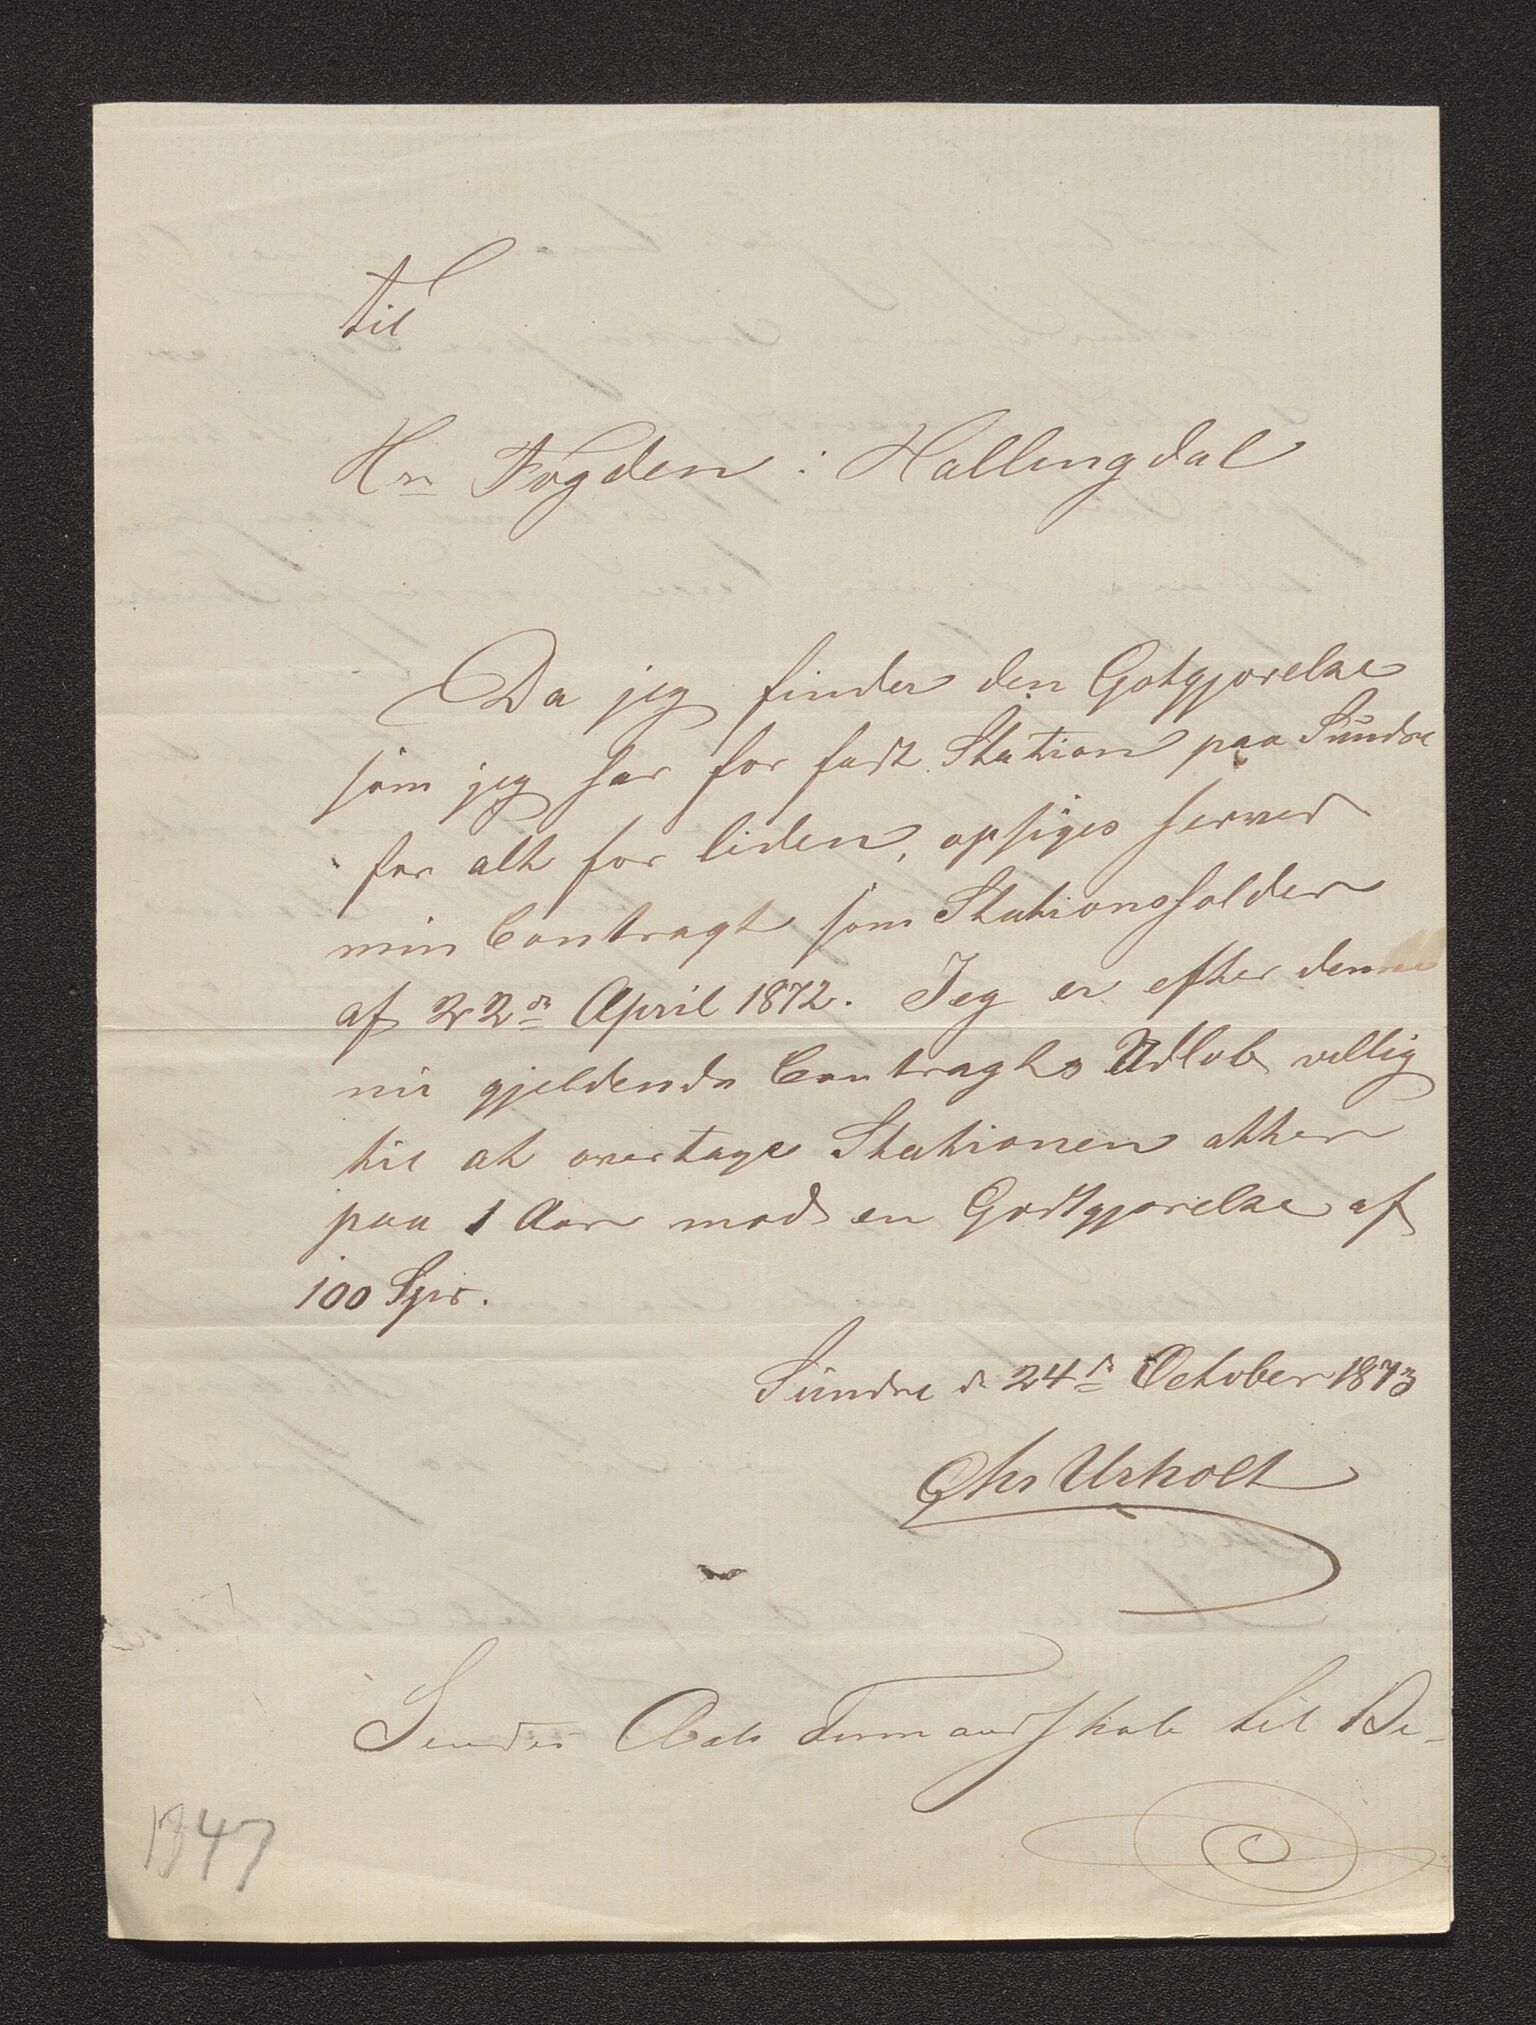 Til
Hrr Fogden i Hallingdal
Da jeg finder den Gotgjorelse
som jeg har for fast Station paa Sundre
for alt for liden, opsiges herved
min Contragt som Stationsholder
af 22de April 1872. Jeg er efter denne
nu gjeldende Contragts Udlob villig
til at overtage Stationen atter
paa 1 Aar mod en Godtgjorelse af
100 Spd.
Sundre d 24de October 1873
Chr Urholt
Sendes Aals Formandskab til Be-
1347